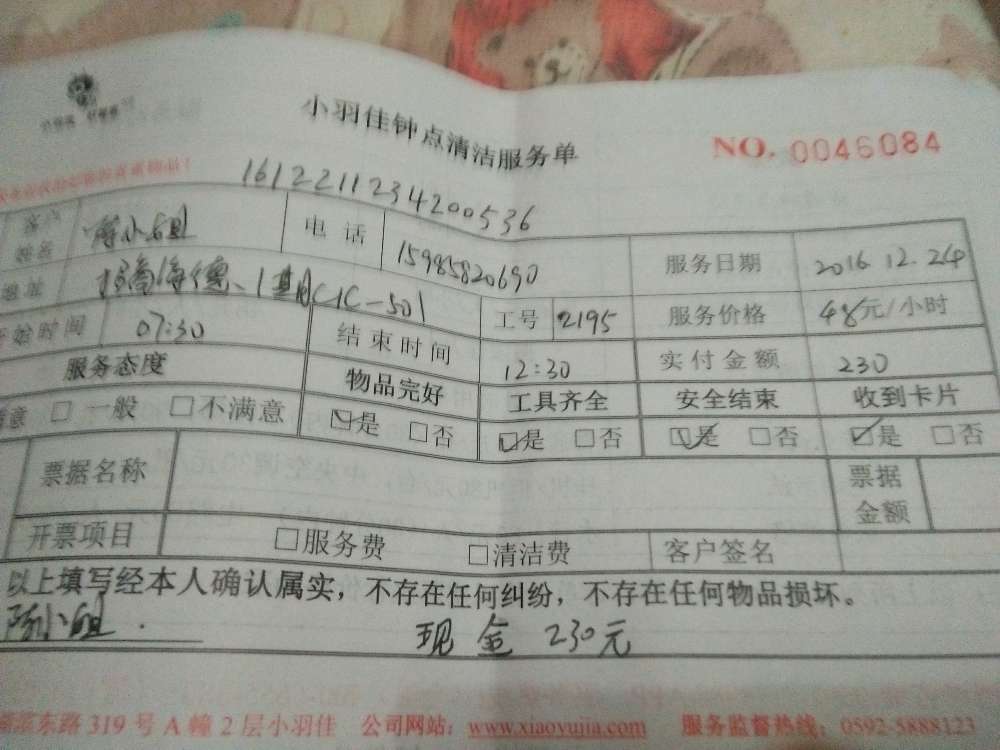 小羽佳钟点清洁服务单
NO. 0046084
1612211234200536
客户姓名 小姐 电话 15985820690 服务日期 2016.12.24
地址 招商海德、1期C1C-501 工号 2195 服务价格 48元/小时
开始时间 07:30 结束时间 12:30 实付金额 230
服务态度 物品完好 工具齐全 安全结束 收到卡片
满意 □ 一般 □不满意 ☑是 □否 ☑是 □否 ☑是 □否 ☑是 □否
票据名称 票据金额
开票项目 □服务费 □清洁费 客户签名
以上填写经本人确认属实，不存在任何纠纷，不存在任何物品损坏。
陈小姐. 现金 230元
东路 319 号 A 幢 2 层小羽佳 公司网站：www.xiaoyujia.com 服务监督热线：0592-5888123